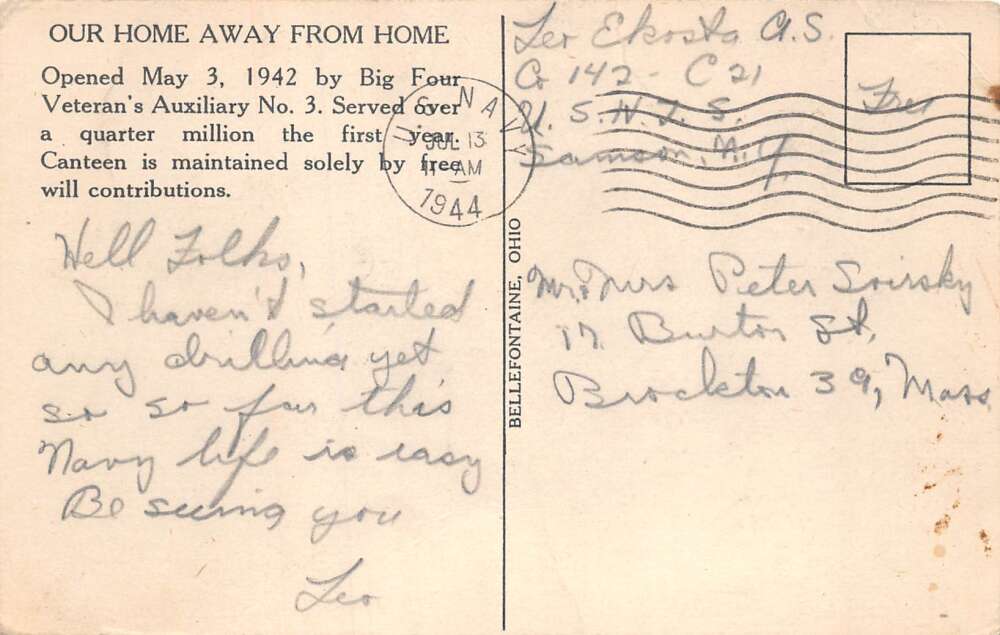 OUR HOME AWAY FROM HOME
Opened May 3, 1942 by Big Four
Veteran's Auxiliary No. 3. Served over
a quarter million the first year.
Canteen is maintained solely by free
will contributions.
Well Folks,
I haven't started
any drilling yet
so so far this
Navy life is easy
Be seeing you
Leo
BELLEFONTAINE, OHIO
U. S. NAVY
JUL 13
AM
1944
Leo Ekosta A.S.
Co 142 - C 21
U. S. N. T. S.
Samson, N.Y.
Free
Mr. & Mrs Peter Svirsky
17 Burton St.
Brockton 39, Mass